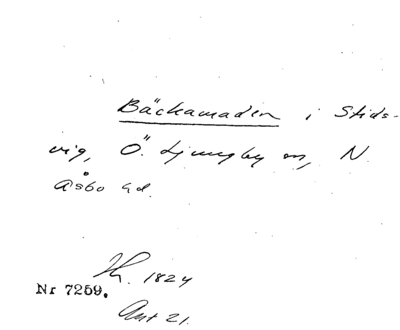 Bäckamaden i Stids-
vig, Ö. Ljungby sn, N.
Åsbo hd.
1824
Nr 7259.
Akt 21.